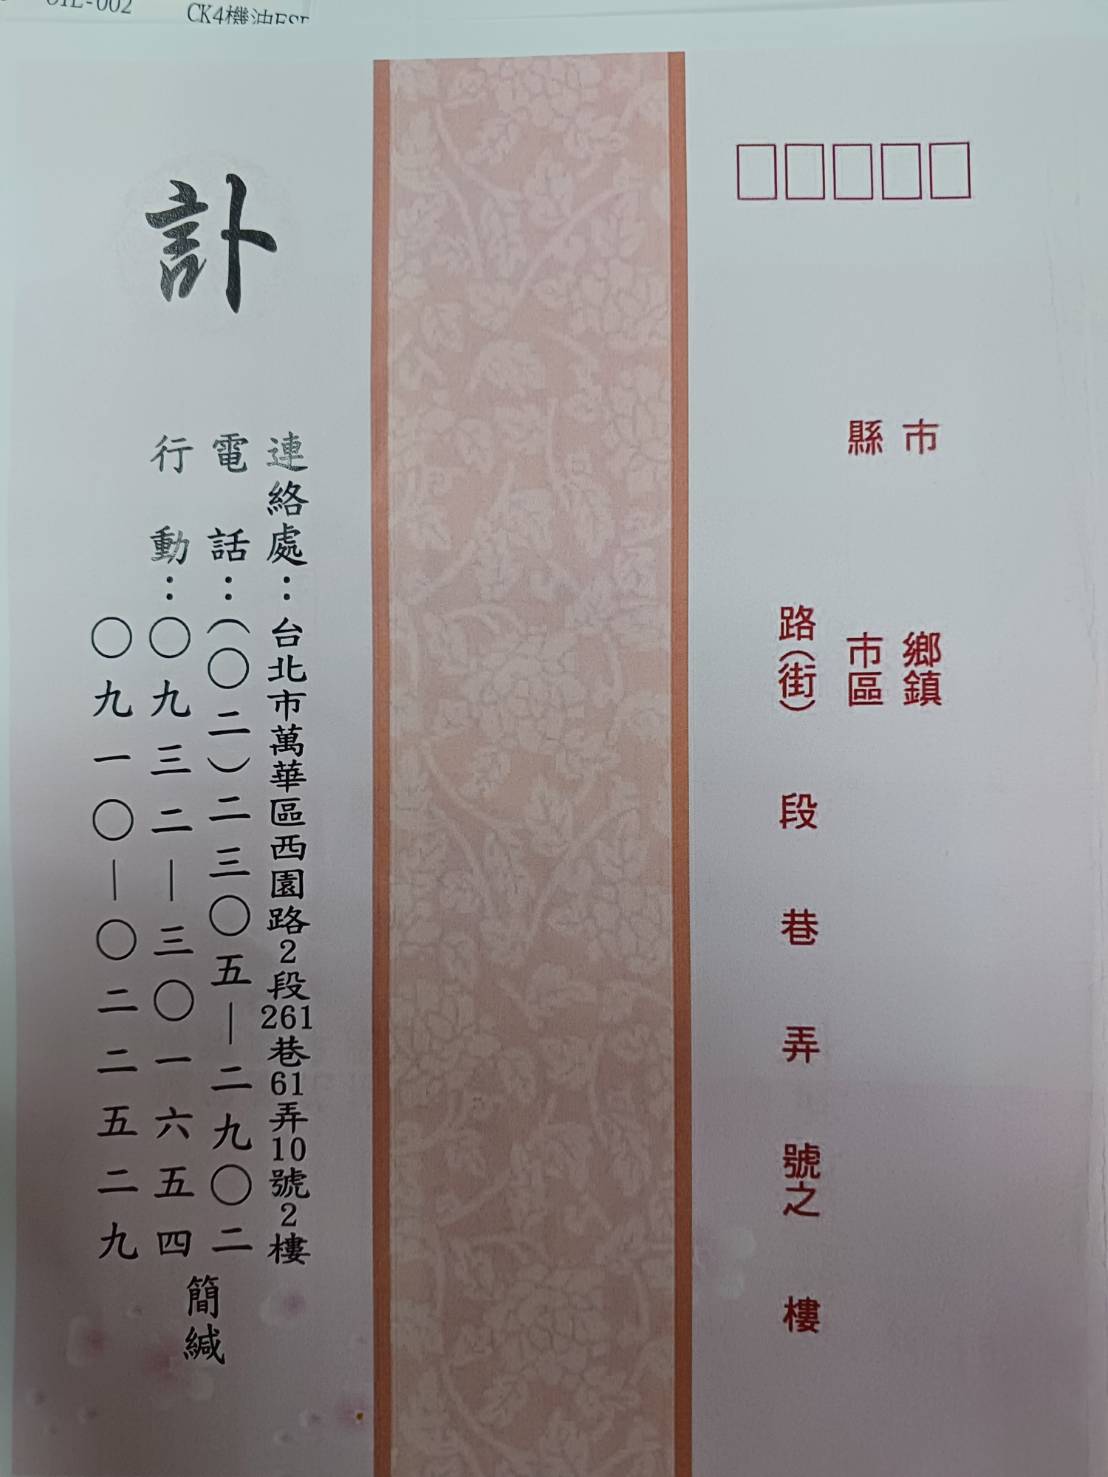 OIL-002
CK4機油
市
縣
鄉鎮
市區
路(街)
段
巷
弄
號之
樓
訃
連絡處：台北市萬華區西園路2段261巷61弄10號2樓
電話：(〇二)二三〇五—二九〇二
行動：〇九三二—三〇一六五四
〇九一〇—〇二二五二九
簡緘